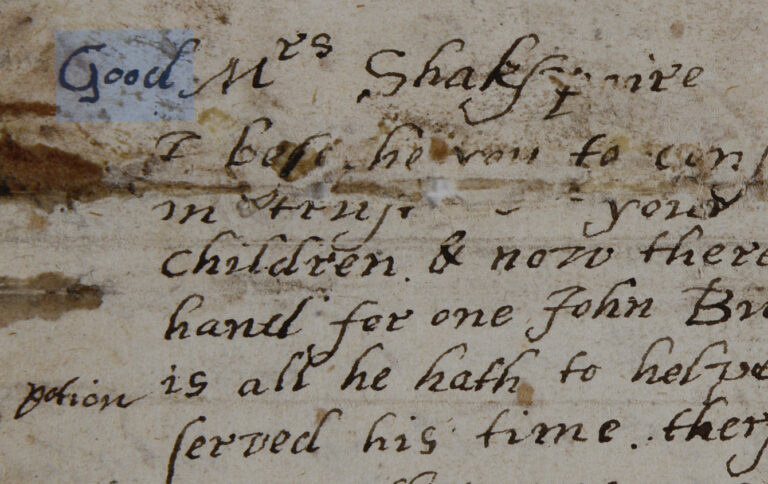 Good Mrs Shakspaire
I beseche you to cons
in trust your
children & now there
hand for one John Bu
is all he hath to helpe
served his time. therf